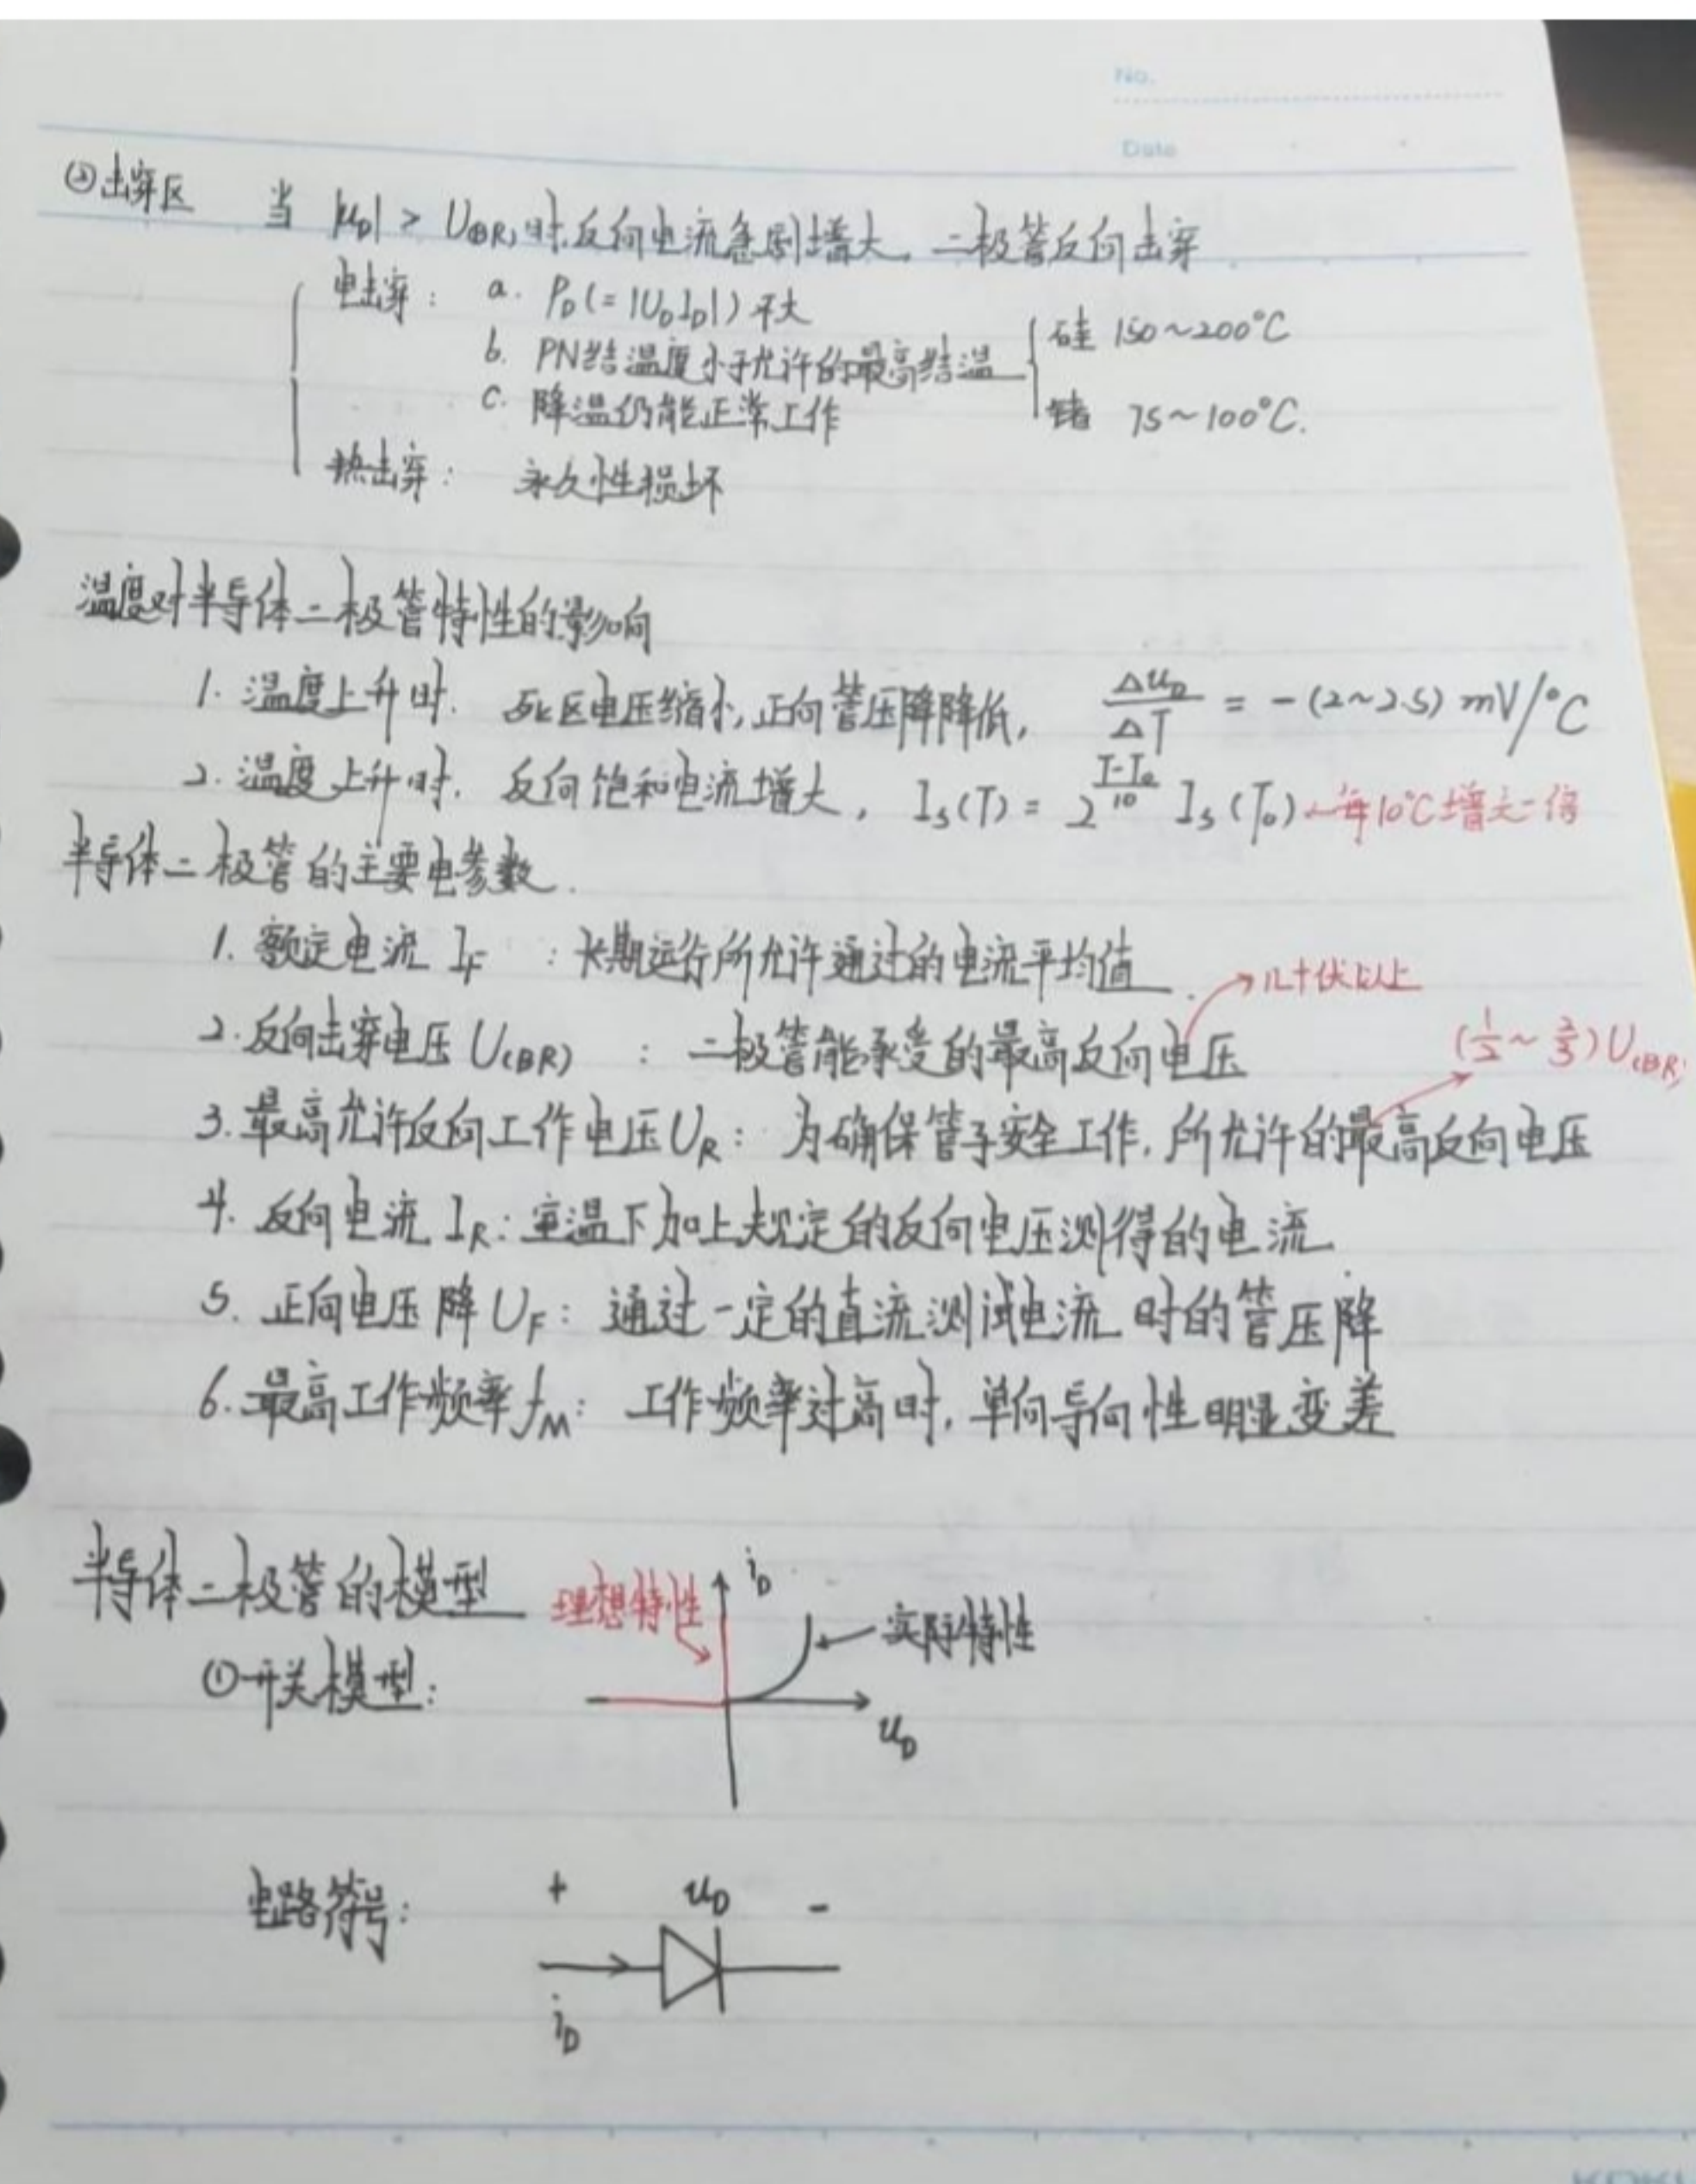 No.
Date
②击穿区 当 |u_D| > U_(BR)时,反向电流急剧增大,二极管反向击穿
电击穿: a. P_D(=|U_D I_D|)不大
b. PN结温度小于允许的最高结温 硅 150~200°C
c. 降温仍能正常工作 锗 75~100°C.
热击穿: 永久性损坏
温度对半导体二极管特性的影响
1. 温度上升时. 死区电压缩小,正向管压降降低, Δu_D/ΔT = -(2~2.5) mV/°C
2. 温度上升时. 反向饱和电流增大, I_S(T) = 2^((T-T_0)/10) I_S(T_0) ←每10°C增大一倍
半导体二极管的主要电参数.
1. 额定电流 I_F : 长期运行所允许通过的电流平均值
→几十伏以上
2. 反向击穿电压 U_(BR) : 二极管能承受的最高反向电压
(1/2~2/3)U_(BR)
3. 最高允许反向工作电压U_R: 为确保管子安全工作,所允许的最高反向电压
4. 反向电流 I_R: 室温下加上规定的反向电压测得的电流
5. 正向电压降U_F: 通过一定的直流测试电流时的管压降
6. 最高工作频率f_M: 工作频率过高时,单向导向性明显变差
半导体二极管的模型
理想特性 i_D 实际特性
①开关模型:
u_D
电路符号: + u_D -
i_D